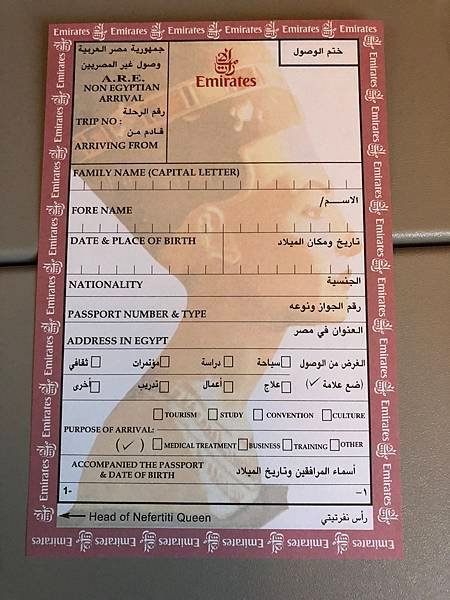 Emirates Emirates Emirates Emirates Emirates Emirates
جمهورية مصر العربية
وصول غير المصريين
A.R.E.
NON EGYPTIAN
ARRIVAL
رقم الرحلة
TRIP NO :
قادم من
ARRIVING FROM
Emirates
ختم الوصول
FAMILY NAME (CAPITAL LETTER)
FORE NAME
الاســـم/
DATE & PLACE OF BIRTH
تاريخ ومكان الميلاد
NATIONALITY
الجنسية
PASSPORT NUMBER & TYPE
رقم الجواز ونوعه
ADDRESS IN EGYPT
العنوان في مصر
الغرض من الوصول سياحة دراسة مؤتمرات ثقافي
(ضع علامة ✓) علاج أعمال تدريب أخرى
TOURISM STUDY CONVENTION CULTURE
PURPOSE OF ARRIVAL:
(✓) MEDICAL TREATMENT BUSINESS TRAINING OTHER
ACCOMPANIED THE PASSPORT
& DATE OF BIRTH
أسماء المرافقين وتاريخ الميلاد
1- ١–
Head of Nefertiti Queen
رأس نفرتيتي
Emirates Emirates Emirates Emirates Emirates Emirates